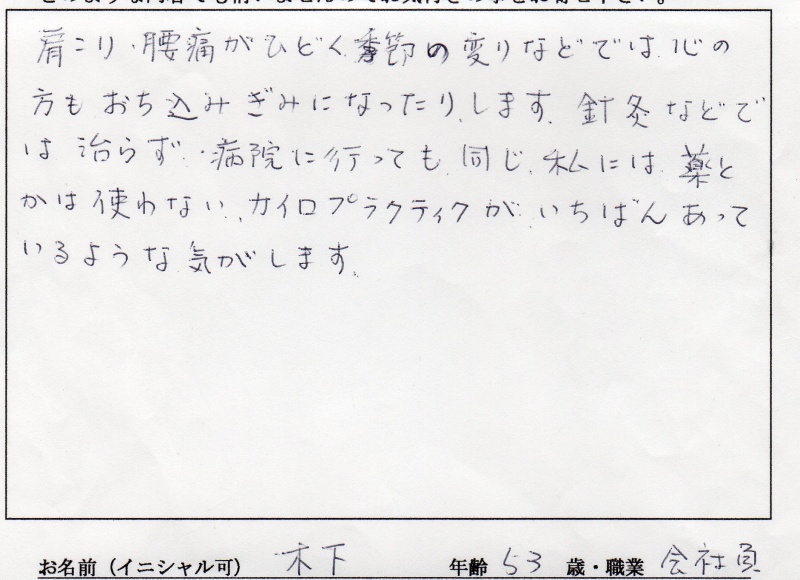 肩こり、腰痛がひどく季節の変りなどでは、心の
方もおち込みぎみになったりします。針灸などで
は治らず、病院に行っても同じ、私には薬と
かは使わない、カイロプラクティクがいちばんあって
いるような気がします。
お名前（イニシャル可） 木下 年齢 53 歳・職業 会社員